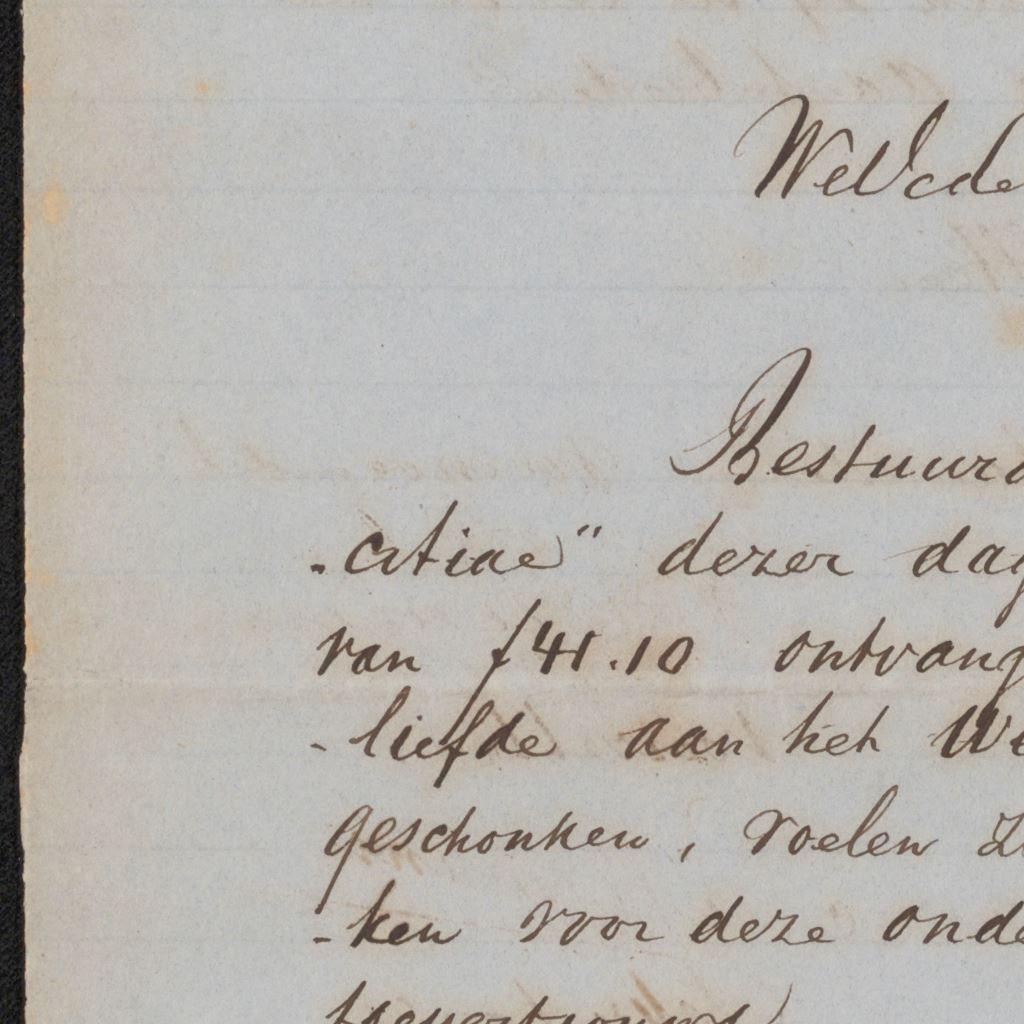 WelEde
Bestuurd
-citiae" dezer dag
van f 41.10 ontvang
-liefde aan het We
geschonken, voelen z
-ken voor deze onde